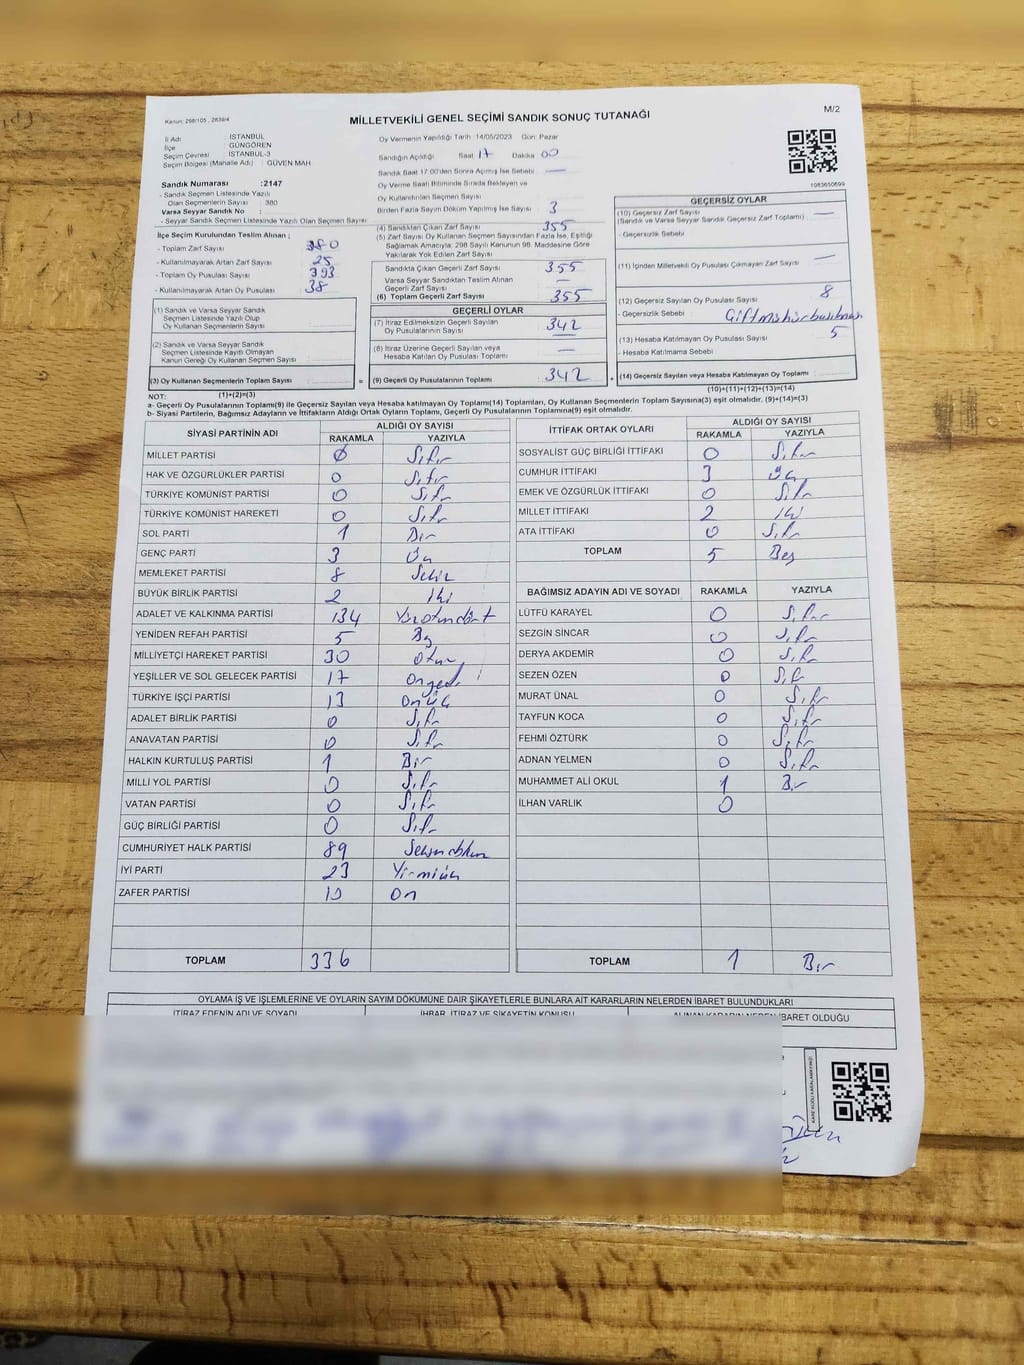 Kanun: 298/105 , 2839/4
MİLLETVEKİLİ GENEL SEÇİMİ SANDIK SONUÇ TUTANAĞI
M/2
İl Adı : İSTANBUL
İlçe : GÜNGÖREN
Seçim Çevresi : İSTANBUL-3
Seçim Bölgesi (Mahalle Adı) : GÜVEN MAH
Sandık Numarası :2147
- Sandık Seçmen Listesinde Yazılı
Olan Seçmenlerin Sayısı : 380
Varsa Seyyar Sandık No :
- Seyyar Sandık Seçmen Listesinde Yazılı Olan Seçmen Sayısı
İlçe Seçim Kurulundan Teslim Alınan ;
- Toplam Zarf Sayısı 380
- Kullanılmayarak Artan Zarf Sayısı 25
- Toplam Oy Pusulası Sayısı 393
- Kullanılmayarak Artan Oy Pusulası 38
(1) Sandık ve Varsa Seyyar Sandık
Seçmen Listesinde Yazılı Olup
Oy Kullanan Seçmenlerin Sayısı
(2) Sandık ve Varsa Seyyar Sandık
Seçmen Listesinde Kayıtlı Olmayan
Kanun Gereği Oy Kullanan Seçmen Sayısı
(3) Oy Kullanan Seçmenlerin Toplam Sayısı
(1)+(2)=(3)
Oy Vermenin Yapıldığı Tarih : 14/05/2023 Gün: Pazar
Sandığın Açıldığı Saat 17 Dakika 00
Sandık Saat 17:00'den Sonra Açılmış İse Sebebi —
Oy Verme Saati Bitiminde Sırada Bekleyen ve
Oy Kullandırılan Seçmen Sayısı
Birden Fazla Sayım Döküm Yapılmış İse Sayısı 3
(4) Sandıktan Çıkan Zarf Sayısı 355
(5) Zarf Sayısı Oy Kullanan Seçmen Sayısından Fazla İse, Eşitliği
Sağlamak Amacıyla; 298 Sayılı Kanunun 98. Maddesine Göre
Yakılarak Yok Edilen Zarf Sayısı
Sandıkta Çıkan Geçerli Zarf Sayısı 355
Varsa Seyyar Sandıktan Teslim Alınan
Geçerli Zarf Sayısı —
(6) Toplam Geçerli Zarf Sayısı 355
GEÇERLİ OYLAR
(7) İtiraz Edilmeksizin Geçerli Sayılan
Oy Pusulalarının Sayısı 342
(8) İtiraz Üzerine Geçerli Sayılan veya
Hesaba Katılan Oy Pusulası Toplamı —
= (9) Geçerli Oy Pusulalarının Toplamı 342 +
1083650699
GEÇERSİZ OYLAR
(10) Geçersiz Zarf Sayısı —
(Sandık ve Varsa Seyyar Sandık Geçersiz Zarf Toplamı)
- Geçersizlik Sebebi
(11) İçinden Milletvekili Oy Pusulası Çıkmayan Zarf Sayısı —
(12) Geçersiz Sayılan Oy Pusulası Sayısı 8
- Geçersizlik Sebebi :
(13) Hesaba Katılmayan Oy Pusulası Sayısı 5
- Hesaba Katılmama Sebebi :
(14) Geçersiz Sayılan veya Hesaba Katılmayan Oy Toplamı
(10)+(11)+(12)+(13)=(14)
NOT:
a- Geçerli Oy Pusulaları Toplamı(9) ile Geçersiz Sayılan veya Hesaba katılmayan Oy Toplamı(14) Toplamları, Oy Kullanan Seçmenlerin Toplam Sayısına(3) eşit olmalıdır. (9)+(14)=(3)
b- Siyasi Partilerin, Bağımsız Adayların ve İttifakların Aldığı Ortak Oyların Toplamı, Geçerli Oy Pusulalarının Toplamına(9) eşit olmalıdır.
SİYASİ PARTİNİN ADI ALDIĞI OY SAYISI
RAKAMLA YAZIYLA
MİLLET PARTİSİ 0 Sıfır
HAK VE ÖZGÜRLÜKLER PARTİSİ 0 Sıfır
TÜRKİYE KOMÜNİST PARTİSİ 0 Sıfır
TÜRKİYE KOMÜNİST HAREKETİ 0 Sıfır
SOL PARTİ 1 Bir
GENÇ PARTİ 3 Üç
MEMLEKET PARTİSİ 8 Sekiz
BÜYÜK BİRLİK PARTİSİ 2 İki
ADALET VE KALKINMA PARTİSİ 134 Yüzotuzdört
YENİDEN REFAH PARTİSİ 5 Beş
MİLLİYETÇİ HAREKET PARTİSİ 30 Otuz
YEŞİLLER VE SOL GELECEK PARTİSİ 17 Onyedi
TÜRKİYE İŞÇİ PARTİSİ 13 Onüç
ADALET BİRLİK PARTİSİ 0 Sıfır
ANAVATAN PARTİSİ 0 Sıfır
HALKIN KURTULUŞ PARTİSİ 1 Bir
MİLLİ YOL PARTİSİ 0 Sıfır
VATAN PARTİSİ 0 Sıfır
GÜÇ BİRLİĞİ PARTİSİ 0 Sıfır
CUMHURİYET HALK PARTİSİ 89 Seksendokuz
İYİ PARTİ 23 Yirmiüç
ZAFER PARTİSİ 10 On
TOPLAM 336
İTTİFAK ORTAK OYLARI ALDIĞI OY SAYISI
RAKAMLA YAZIYLA
SOSYALİST GÜÇ BİRLİĞİ İTTİFAKI 0 Sıfır
CUMHUR İTTİFAKI 3 Üç
EMEK VE ÖZGÜRLÜK İTTİFAKI 0 Sıfır
MİLLET İTTİFAKI 2 İki
ATA İTTİFAKI 0 Sıfır
TOPLAM 5 Beş
BAĞIMSIZ ADAYIN ADI VE SOYADI RAKAMLA YAZIYLA
LÜTFÜ KARAYEL 0 Sıfır
SEZGİN SİNCAR 0 Sıfır
DERYA AKDEMİR 0 Sıfır
SEZEN ÖZEN 0 Sıfır
MURAT ÜNAL 0 Sıfır
TAYFUN KOCA 0 Sıfır
FEHMİ ÖZTÜRK 0 Sıfır
ADNAN YELMEN 0 Sıfır
MUHAMMET ALİ OKUL 1 Bir
İLHAN VARLIK 0
TOPLAM 1 Bir
OYLAMA İŞ VE İŞLEMLERİNE VE OYLARIN SAYIM DÖKÜMÜNE DAİR ŞİKAYETLERLE BUNLARA AİT KARARLARIN NELERDEN İBARET BULUNDUKLARI
İTİRAZ EDENİN ADI VE SOYADI İHBAR, İTİRAZ VE ŞİKAYETİN KONUSU ALINAN KARARIN NEDEN İBARET OLDUĞU